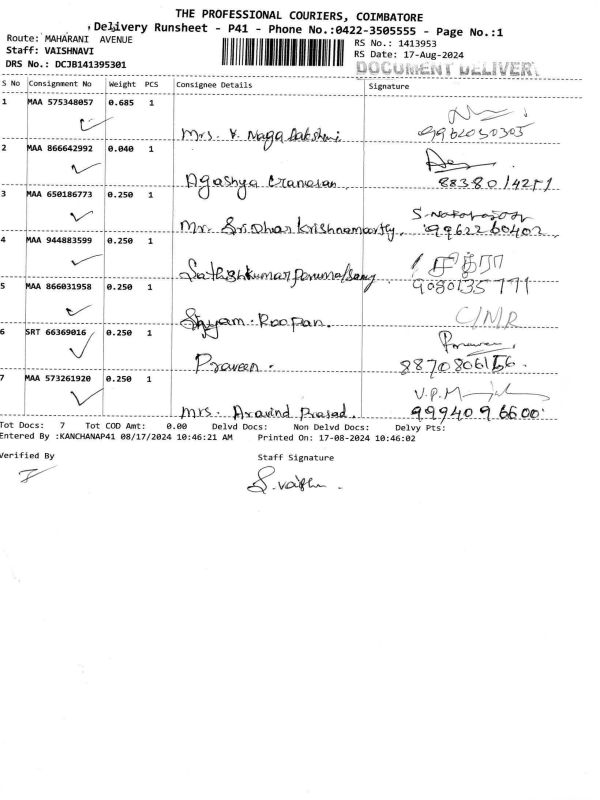 THE PROFESSIONAL COURIERS, COIMBATORE
Delivery Runsheet - P41 - Phone No.:0422-3505555 - Page No.:1
Route: MAHARANI AVENUE
RS No.: 1413953
Staff: VAISHNAVI
RS Date: 17-Aug-2024
DRS No.: DCJB141395301
DOCUMENT DELIVERY
S No Consignment No Weight PCS Consignee Details Signature
1 MAA 575348057 0.685 1
Mrs. V. Naga Lakshmi 9962050305
2 MAA 866642992 0.040 1
Agashya 8838014251
3 MAA 650186773 0.250 1
Mr. Sri Dhar Krishnamoorthy. 9962260402
4 MAA 944883599 0.250 1
Sathishkumar 9080135771
5 MAA 866031958 0.250 1
Shyam. Roopan. C/MR
6 SRT 66369016 0.250 1 Praveen
Praveen. 8870806166.
7 MAA 573261920 0.250 1 V.P.
Mrs. Aravind Prasad. 9994096600
Tot Docs: 7 Tot COD Amt: 0.00 Delvd Docs: Non Delvd Docs: Delvy Pts:
Entered By :KANCHANAP41 08/17/2024 10:46:21 AM Printed On: 17-08-2024 10:46:02
Verified By Staff Signature